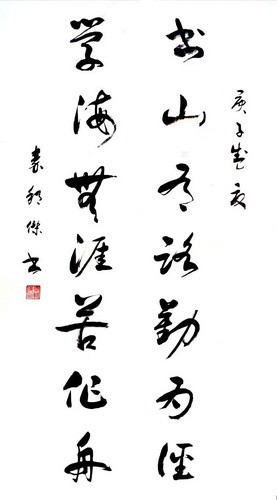 庚子歲夏
書山有路勤為徑
學海無涯苦作舟
傑書